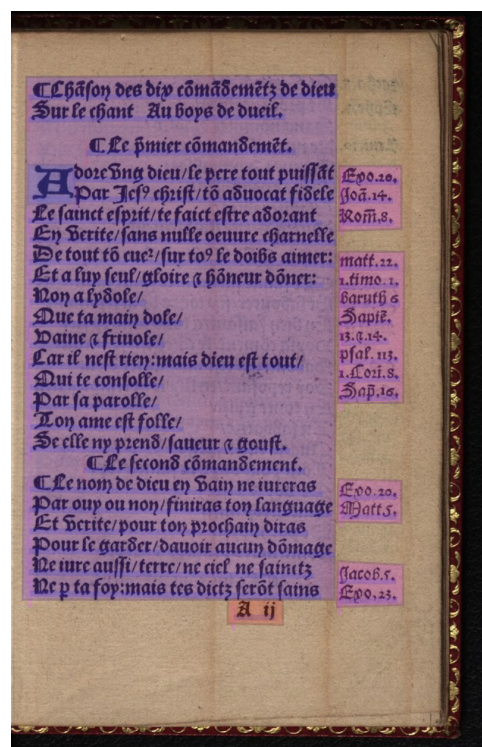 ⁋Chãson des dix cõmãdemẽtz de dieu
Sur le chant Au boys de dueil.
⁋Le p̃mier cõmandemẽt.
Adore vng dieu/le pere tout puissãt
Par Jesꝰ christ/tõ aduocat fidele
Le sainct esprit/te faict estre adorant
En verite/sans nulle oeuure charnelle
De tout tõ cueꝛ/sur toꝰ le doibs aimer:
Et a luy seul/gloire ⁊ hõneur dõner:
Non a lydole/
Que ta main dole/
Vaine ⁊ friuole/
Car il nest rien:mais dieu est tout/
Qui te consolle/
Par sa parolle/
Ton ame est folle/
Se elle ny prend/saueur ⁊ goust.
⁋Le second cõmandement.
⁋Le nom de dieu en vain ne iureras
Par ouy ou non/finiras ton language
Et verite/pour ton prochain diras
Pour le garder/dauoir aucun dõmage
Ne iure aussi/terre/ne ciel ne sainctz
Ne p ta foy:mais tes dictz serõt sains
Exo.20.
Joã.14.
Rom̃.8.
matt.22.
1.timo.1.
baruth 6
Sapiẽ.
13.⁊.14.
psal.113.
1.Cori.8.
Sap̃.16.
Exo.20.
Matt.5.
Jacob.5.
Exo.23.
A ij